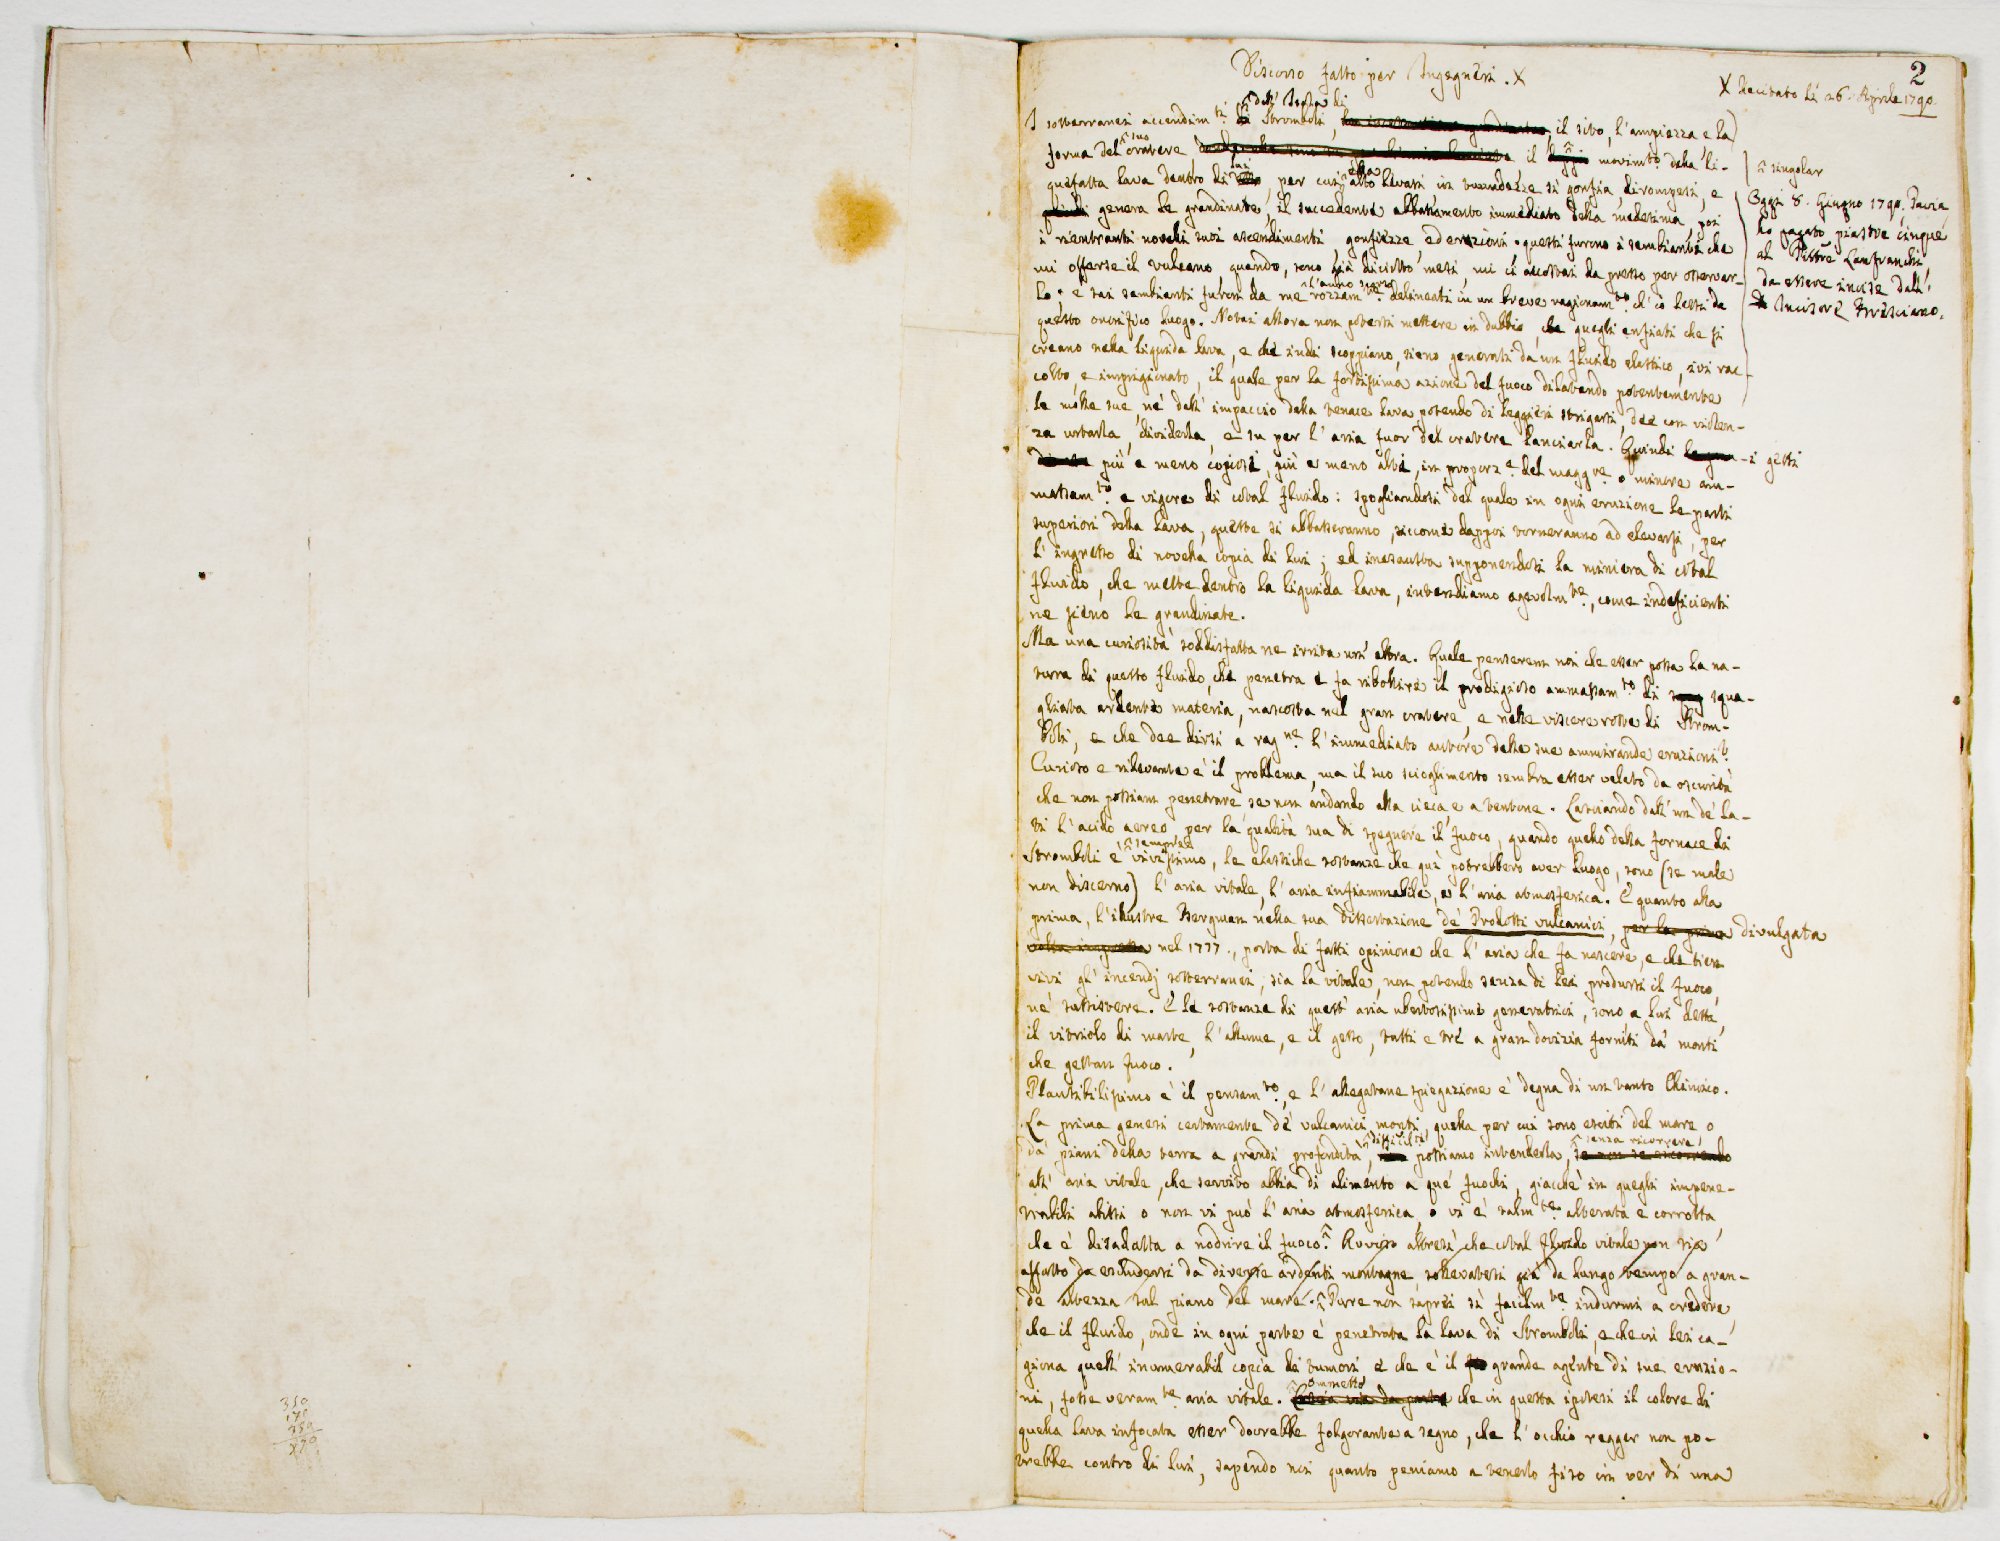 2
Discorso fatto per Ingegneri. X
X Recitato li 26. Aprile 1790.
I sotterranei accendim.ti dell'Isola di Stromboli, il sito, l'ampiezza, e la
forma del suo cratere, il singolar movim.to della li-
quefatta lava dentro di lui, per cui ella alto levasi in tumidezze si gonfia, dirompesi, e
genera le grandinate, il succedente abbassamento immediato della medesima, poi
i rientranti novelli suoi ascendimenti gonfiezze ed eruzioni. questi furono i sembianti che
mi offerse il vulcano quando, sono già diciotto mesi mi ci accostai da presso per osservar-
lo; e tai sembianti furon da me l'anno scorso rozzam.te delineati in un breve ragionam.to ch'io lessi da
questo onorifico luogo. Notai allora non potersi mettere in dubbio, che quegli enfiati che si
creano nella liquida lava, e che indi scoppiano, sieno generati da un fluido elastico, ivi rac-
colto, e imprigionato, il quale per la fortissima azione del fuoco dilatando potentemente
le molle sue, nè dall'impaccio della tenace lava potendo di leggieri strigarsi, dee con violen-
za urtarla, dividerla, e su per l'aria fuor del cratere lanciarla. Quindi i gitti
più e meno copiosi, più e meno alti, in proporz.e del magg.re o minore am-
massam.to e vigore di cotal fluido: spogliandosi del quale in ogni eruzione le parti
superiori della lava, queste si abbasseranno, siccome dappoi torneranno ad elevarsi, per
l'ingresso di novella copia di lui; ed inesausta supponendosi la miniera di cotal
fluido, che mette dentro la liquida lava, intendiamo agevolm.te, come indeficienti
ne sieno le grandinate.
Ma una curiosità soddisfatta ne irrita un'altra. Quale penserem noi che esser possa la na-
tura di questo fluido, che penetra e fa ribollire il prodigioso ammassam.to di squa-
gliata ardente materia, nascosta nel gran cratere, e nelle viscere rotte di Strom-
boli, e che dee dirsi a rag.ne l'immediato autore delle sue ammirande eruzioni?
Curioso e rilevante è il problema, ma il suo scioglimento sembra esser velato da oscurità
che non possiam penetrare se non andando alla cieca, e a tentone. Lasciando dall'un de' la-
ti l'acido aereo, per la qualità sua di spegnere il fuoco, quando quello della fornace di
Stromboli è sempre vivissimo, le elastiche sostanze che quì potrebbero aver luogo, sono (se male
non discerno) l'aria vitale, l'aria infiammabile, e l'aria atmosferica. E quanto alla
prima, l'illustre Bergman nella sua Dissertazione de' Prodotti vulcanici, divulgata
nel 1777., porta di fatti opinione che l'aria che fa nascere, e che tien
vivi gl'incendj sotterranei, sia la vitale, non potendo senza di lei prodursi il fuoco,
nè sussistere. E le sostanze di quest'aria ubertosissime generatrici, sono a lui detta,
il vitriolo di marte, l'allume, e il gesso, tutti e tre a gran dovizia forniti da' monti
che gettan fuoco.
Plausibilissimo è il pensam.to, e l'allegatane spiegazione è degna di un tanto Chimico.
La prima genesi certamente de' vulcanici monti, quella per cui sono esciti del mare, o
da' piani della terra a grandi profondità, difficilm. possiamo intenderla, senza ricorrere
all'aria vitale, che servito abbia di alimento a que' fuochi, giacchè in quegli impene-
trabili abissi o non vi può l'aria atmosferica, o vi è talm.te alterata e corrotta,
che è disadatta a nodrire il fuoco. Avviso altresì che cotal fluido vitale non sia
affatto da escludersi da diverse ardenti montagne, sollevatesi già da lungo tempo a gran-
de altezza sul piano del mare. Pure non saprei sì facilm.te indurmi a credere,
che il fluido, onde in ogni parte è penetrata la lava di Stromboli, e che in lei ca-
giona quell'inumerabil copia di tumori e che è il grande agente di sue eruzio-
ni, fosse veram.te aria vitale. Ommetto che in questa ipotesi il colore di
quella lava infocata esser dovrebbe folgorante a segno, che l'occhio regger non po-
trebbe contro di lui, sapendo noi quanto peniamo a tenerlo fiso in ver di una
singolar
Oggi 8. Giugno 1790. Pavia
ho pagato piastre cinque
al Pittre Lanfranchi
da essere incise dall'
Incisore Bresciano.
310